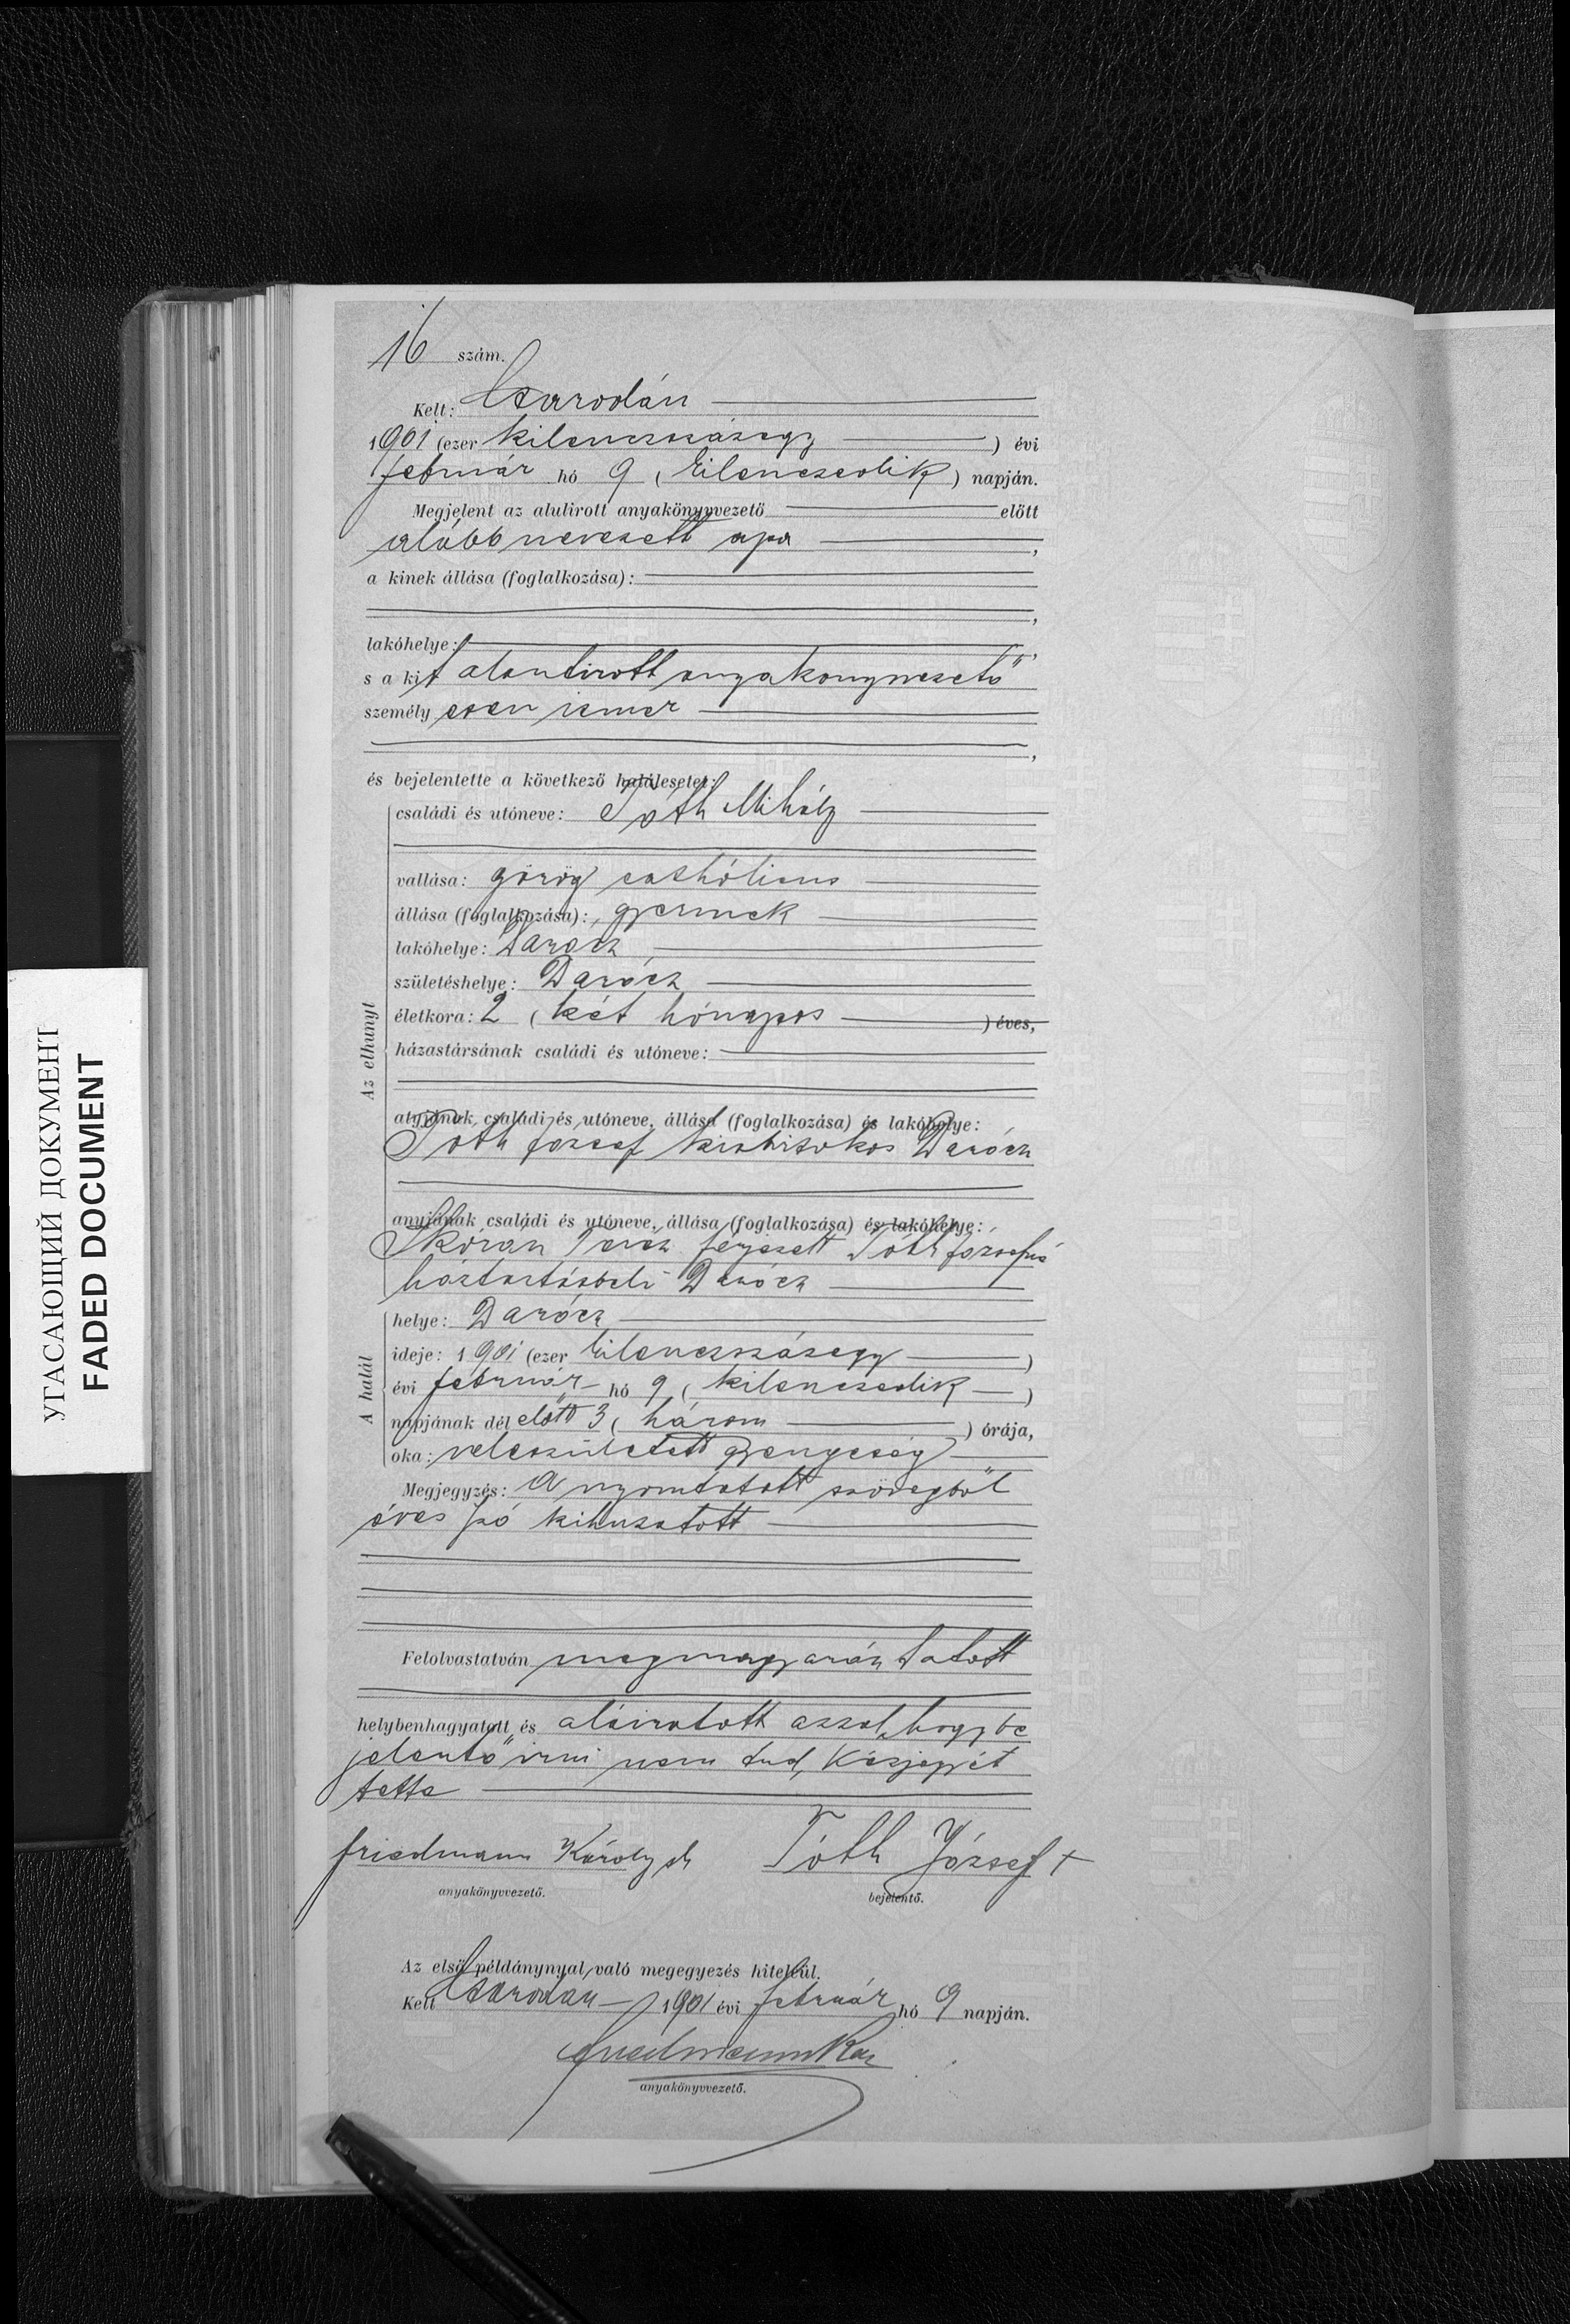 16 szám.
Kelt: Csarodán
1901 (ezer kilenczszázegy ) évi
február hó 9 ( kilenczedik ) napján.
Megjelent az alulirott anyakönyvvezető előtt
alább nevezett apa ,
a kinek állása (foglalkozása):
,
lakóhelye: ,
s a kit alantirott anyakönyvvezető
személyesen ismer
,
és bejelentette a következő halálesetet:
családi és utóneve: Tóth Mihály
vallása: görög cathólicus
állása (foglalkozása): gyermek
lakóhelye: Darócz
születéshelye: Darócz
életkora: 2 ( két hónapos ) éves,
házastársának családi és utóneve:
Az elhunyt
atyjának családi és utóneve, állása (foglalkozása) és lakóhelye:
Tóth József kisbirtokos Darócz
anyjának családi és utóneve, állása (foglalkozása) és lakóhelye:
Teréz férjezett Tóth Józsefné
háztartásbeli Darócz
helye: Darócz
ideje: 1901 (ezer kilenczszázegy )
évi február hó 9 ( kilenczedik )
A halál
napjának dél előtt 3 ( három ) órája,
oka: veleszületett gyengeség
Megjegyzés: A nyomtatott szövegből
éves szó kihuzatott
Felolvastatván megmagyaráztatott
helybenhagyatott és aláiratott azzal, hogy be
jelentő irni nem tud, kézjegyét
tette
Friedmann Károly sk Tóth József +
anyakönyvvezető. bejelentő.
Az első példánynyal való megegyezés hiteléül.
Kelt Csarodán 1901 évi február hó 9 napján.
Friedmann Kár
anyakönyvvezető.
УГАСАЮЩИЙ ДОКУМЕНТ
FADED DOCUMENT